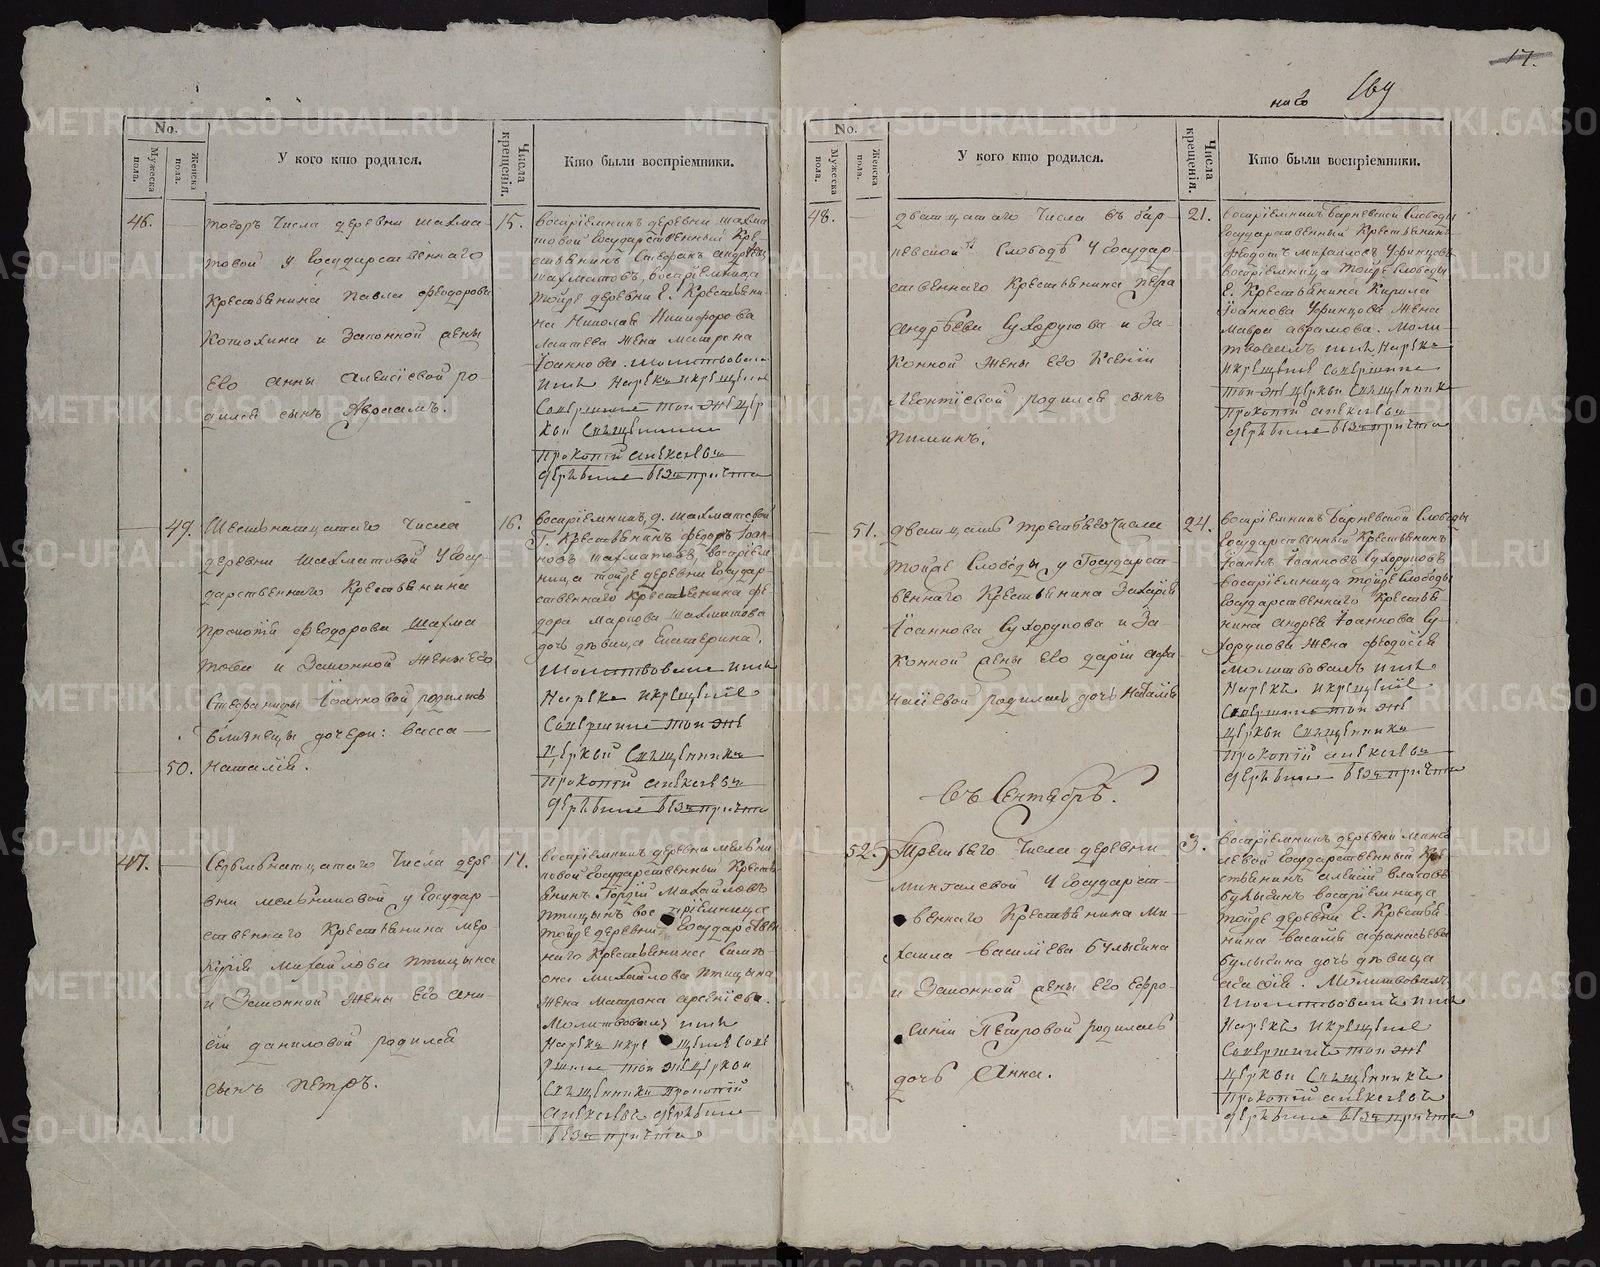 17.
169
No.
Мужеска пола.
Женска пола.
У кого кто родился.
Числа крещенія.
Кто были воспріемники.
46.
тогожъ числа деревни шахма-
товой у Государственнаго
Крестьянина Павла Феодорова
Котюхина и Законной жены
Его Анны Алексіевой ро-
дился сынъ Авраамъ.
15.
воспріемникъ деревни шахма
товой Государственный Кре-
стьянинъ Стефанъ Андреевъ
шахматовъ, воспріемница
тойже деревни Г. Крестьяни-
на Николая Никифорова
жена матрона
Іоаннова. молитвовалъ
имя Нарекъ и крещеніе
Совершилъ тойже цер
кви Священникъ
Прокопій Алексіевъ
безъ причта
49.
Шестьнатцатаго числа
деревни Шахматовой у Госу-
дарственнаго Крестьянина
Прокопія Феодорова Шахма
това и Законной жены Его
Стефаниды Іоанновой родились
близнецы дочери: Васса
50.
Наталія.
16.
воспріемникъ, д. шахматовой
Г. Крестьянинъ Федоръ Іоан-
новъ шахматовъ, воспріем
ница тойже деревни Государ-
ственнаго Крестьянина Фе-
дора Маркова Шахматова
дочь девица Екатерина.
Молитвовалъ имя
Нарекъ и крещеніе
Совершилъ той же
церкви Священникъ
Прокопій Алексіевъ
безъ причта
47.
Седьмьнатцатаго числа дере
вни мельниковой у Государ-
ственнаго Крестьянина мер-
курія михайлова птицына
и Законной жены Его Кени-
іи даниловой родился
сынъ Петръ.
17.
воспріемникъ деревни мельни
ковой Государственный Кресть
янинъ Гордій Михайловъ
птицынъ воспріемница
тойже деревни Государствен
наго Крестьянина Симе-
она михайлова птицына
жена матрона арсеніева.
Молитвовалъ имя
Нарекъ и крещеніе Сове
ршилъ той же церкви
Священникъ Прокопій
Алексіевъ
безъ причта
No.
Мужеска пола.
Женска пола.
У кого кто родился.
Числа крещенія.
Кто были воспріемники.
48.
Дватцатаго числа въ бар-
невской Слободѣ у Государ-
ственнаго Крестьянина Петра
Андреева Сухорукова и За-
конной жены Его Ксеніи
Леонтіевой родился сынъ
Пименъ.
21.
воспріемникъ барневской Слободы
Государственный Крестьянинъ
Федотъ михайловъ Уфинцовъ
воспріемница тойже Слободы
Г. Крестьянина Кирила
Іоаннова Уфинцова жена
Мавра аврамова. моли-
твовалъ имя Нарекъ
и крещеніе Совершилъ
той же церкви Священникъ
Прокопій Алексіевъ
безъ причта
51.
Дватцать третьяго числа
тойже Слободы у Государст-
веннаго Крестьянина Захарія
Іоаннова Сухорукова и За-
конной жены Его даріи афа-
насіевой родилась дочь Наталія
24.
воспріемникъ барневской Слободы
Государственный Крестьянинъ
Іоаннъ Іоанновъ Сухоруковъ
воспріемница тойже Слободы
Государственнаго Крестья
нина андрея Іоаннова Су-
хорукова жена Федосія
молитвовалъ имя
Нарекъ и крещеніе
Совершилъ той же
церкви Священникъ
Прокопій Алексіевъ
безъ причта
Въ Сентябрѣ.
52.
Третьяго числа деревни
Минкалевой у Государст-
веннаго Крестьянина Ми-
хаила Василіева Булыгина
и Законной жены Его Евфро-
синіи Петровой родилась
дочь Анна.
3.
воспріемникъ деревни минка
левой Государственный Кре
стьянинъ алексій власовъ
булыгинъ воспріемница
тойже деревни Г. Крестья-
нина василія афанасьева
булыгина дочь девица
Молитвовалъ
Молитвовалъ имя
Нарекъ и крещеніе
Совершилъ той же
церкви Священникъ
Прокопій Алексіевъ
безъ причта
METRIKI.GASO-URAL.RU